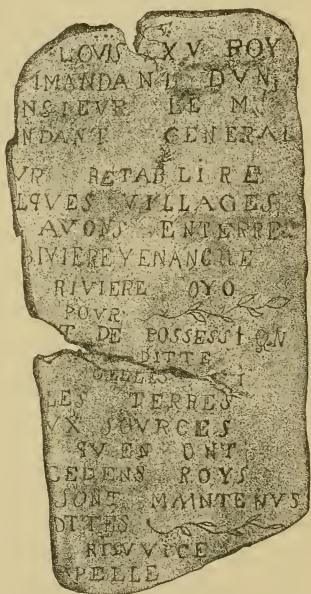 LOUIS XV ROY
IMANDANT DUN
NSIEUR LE M
NDANT GENERAL
UR RETABLIRE
LQUES VILLAGES
AVONS ENTERRE
RIVIERE YENANGUE
RIVIERE OYO
POUR
T DE POSSESSION
DITTE
LES TERRES
UX SOURCES
QUEN ONT
CEDENS ROYS
SONT MAINTENUS
DITTES
PELLE